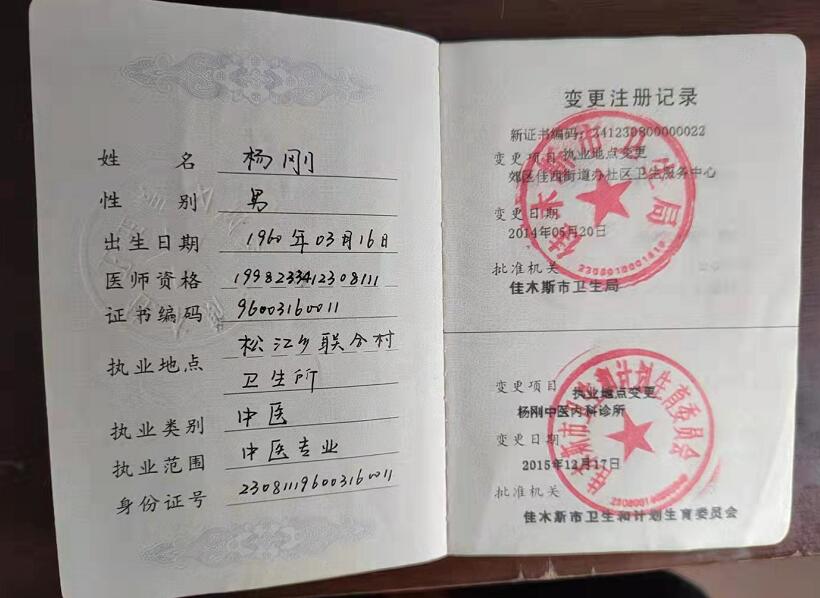 姓名 杨刚
性别 男
出生日期 1960年03月16日
医师资格 1998233412308111
证书编码 96003160011
执业地点 松江乡联合村
卫生所
执业类别 中医
执业范围 中医专业
身份证号 230811196003160011
变更注册记录
新证书编码：141230800000022
变更项目 执业地点变更
郊区佳西街道办社区卫生服务中心
变更日期
2014年05月20日
批准机关
佳木斯市卫生局
佳木斯市卫生局
变更项目 执业地点变更
杨刚中医内科诊所
变更日期
2015年12月17日
批准机关
佳木斯市卫生和计划生育委员会
佳木斯市卫生和计划生育委员会